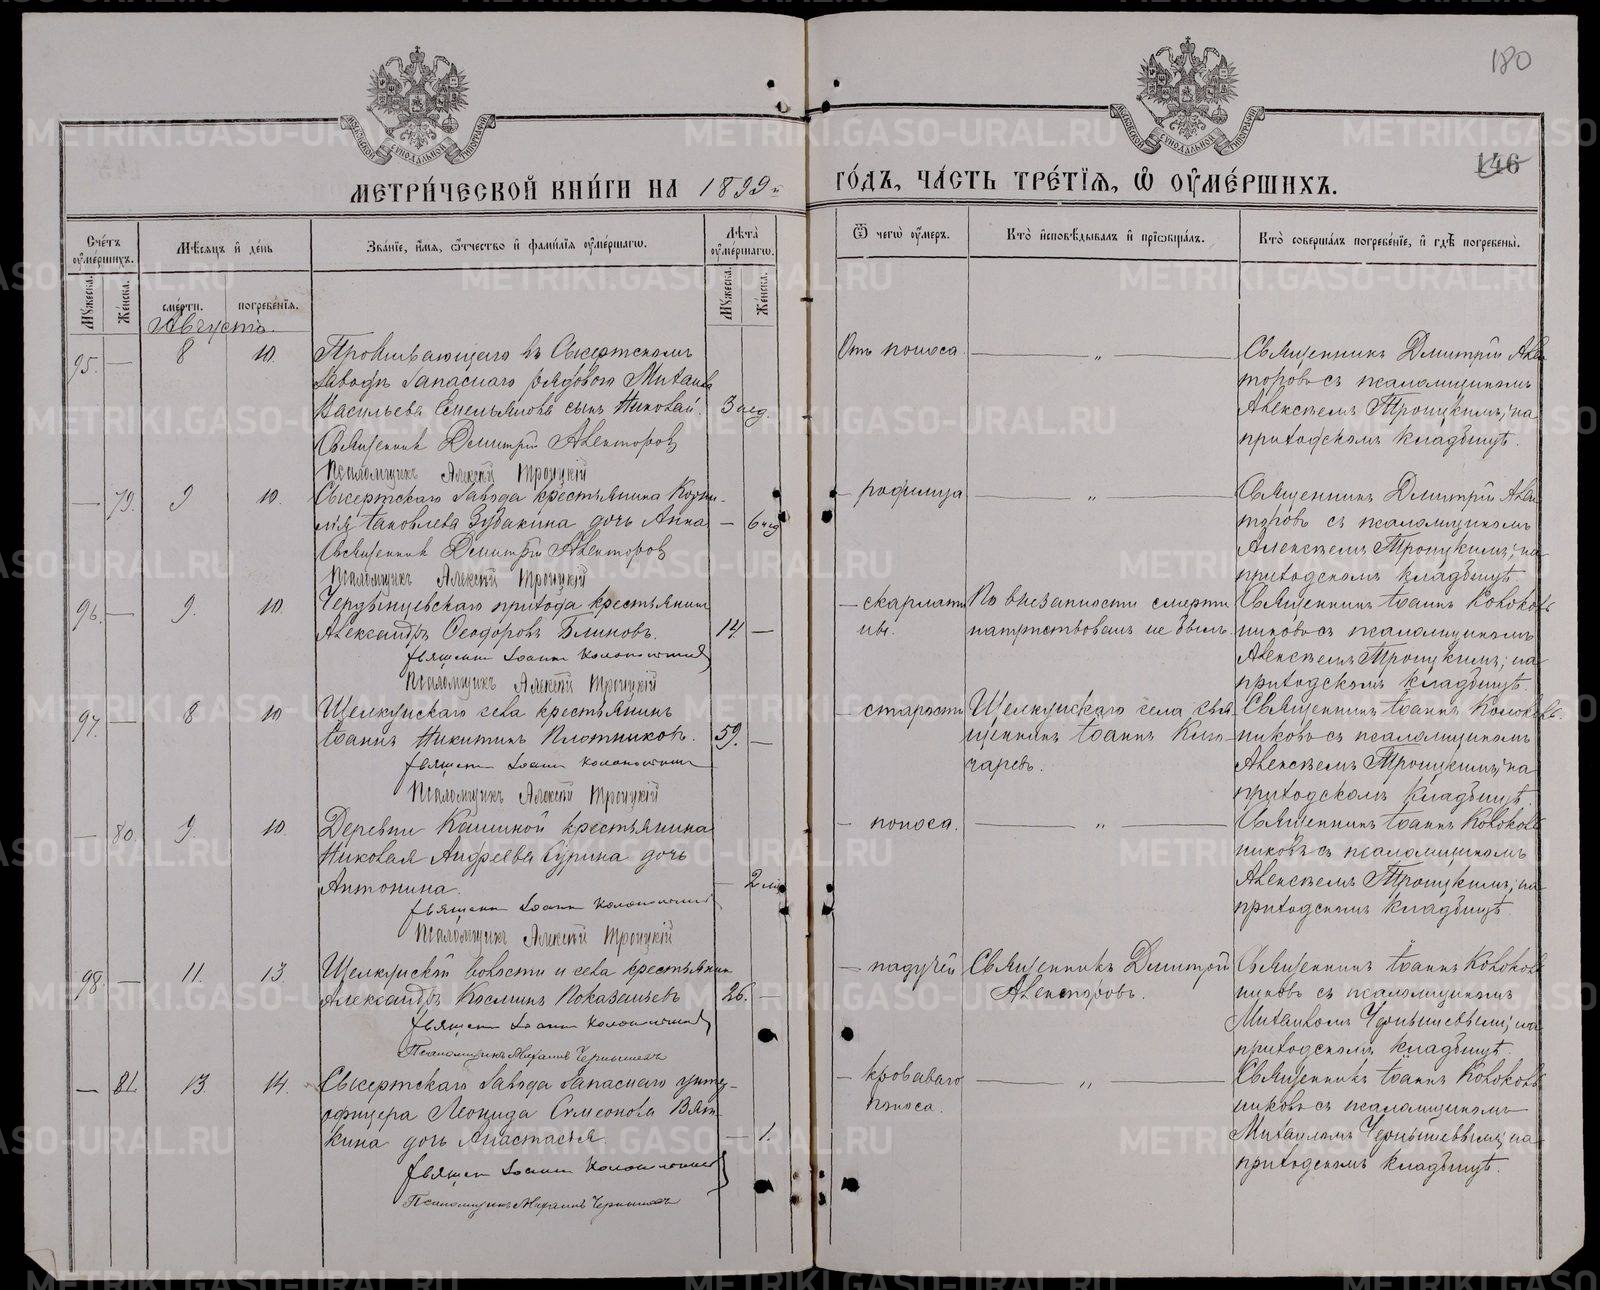 180
146
МЕТРИ́ЧЕСКОЙ КНИ́ГИ НА 1899й
ГО́ДЪ, ЧА́СТЬ ТРЕ́ТІѦ, Ѽ ОУ҆МЕ́РШИХЪ.
Сче́тъ оу҆ме́ршихъ.
Мѣ́сяцъ и҆ де́нь
Зва́ніе, и҆́мя, ѻ҆́тчество и҆ фами́лїя оу҆ме́ршагѡ.
Лѣ́та оу҆ме́ршагѡ.
Ѿ чегѡ̀ оу҆́меръ.
Кто̀ и҆сповѣ́дывалъ и҆ прїѡбща́лъ.
Кто̀ соверша́лъ погребе́нїе, и҆ гдѣ̀ погребены̀.
Му́жеска.
Же́нска.
сме́рти.
погребе́нїя.
Му́жеска.
Же́нска.
Августъ.
95. — 8 10.
Проживающаго въ Сысертскомъ
заводѣ запаснаго рядового Михаила
Васильева Емельянова сынъ Николай. 3 нед.
Священникъ Димитрій Авенторовъ
Псаломщикъ Алексѣй Троицкій
Отъ поноса. — „ —
Священникъ Димитрій Авен-
торовъ съ псаломщикомъ
Алексѣемъ Троицкимъ; на
приходскомъ кладбищѣ.
— 79. 9 10.
Сысертскаго завода крестьянина Корни-
лія Іаковлева Зубакина дочь Анна — 6 нед
Священникъ Димитрій Авенторовъ
Псаломщикъ Алексѣй Троицкій
— родимца — „ —
Священникъ Димитрій Авен-
торовъ съ псаломщикомъ
Алексѣемъ Троицкимъ; на
приходскомъ кладбищѣ.
96. — 9. 10.
прихода крестьянинъ
Александръ Ѳеодоровъ Блиновъ. 14 —
Священникъ Іоаннъ Колокольниковъ
Псаломщикъ Алексѣй Троицкій
— скарлати-
ны.
По внезапности смерти
напутствованъ не былъ.
Священникъ Іоаннъ Колоколь-
никовъ съ псаломщикомъ
Алексѣемъ Троицкимъ; на
приходскомъ кладбищѣ.
97. — 8 10
Щелкунскаго села крестьянинъ
Іоаннъ Никитинъ Плотниковъ. 59. —
Священникъ Іоаннъ Колокольниковъ
Псаломщикъ Алексѣй Троицкій
— старости
Щелкунскаго села свя-
щенникъ Іоаннъ
Священникъ Іоаннъ Колоколь-
никовъ съ псаломщикомъ
Алексѣемъ Троицкимъ; на
приходскомъ кладбищѣ.
— 80. 9. 10.
Деревни Кашиной крестьянина
Николая Андреева Сурина дочь
Антонина. — 2
Священникъ Іоаннъ Колокольниковъ
Псаломщикъ Алексѣй Троицкій
— поноса. — „ —
Священникъ Іоаннъ Колоколь-
никовъ съ псаломщикомъ
Алексѣемъ Троицкимъ; на
приходскомъ кладбищѣ.
98. — 11. 13.
Щелкунской волости и села крестьянинъ
Александръ Косминъ Показаньевъ 26. —
Священникъ Іоаннъ Колокольниковъ
Псаломщикъ Михаилъ Чернышевъ
— падучей
Священникъ Димитрій
Авенторовъ.
Священникъ Іоаннъ Колоколь-
никовъ съ псаломщикомъ
Михаиломъ Чернышевымъ; на
приходскомъ кладбищѣ.
— 81. 13. 14.
Сысертскаго завода запаснаго унтер-
офицера Леонида Симеонова Вят-
кина дочь Анастасія. — 1.
Священникъ Іоаннъ Колокольниковъ
Псаломщикъ Михаилъ Чернышевъ
— кроваваго
поноса. — „ —
Священникъ Іоаннъ Колоколь-
никовъ съ псаломщикомъ
Михаиломъ Чернышевымъ; на
приходскомъ кладбищѣ.
METRIKI.GASO-URAL.RU